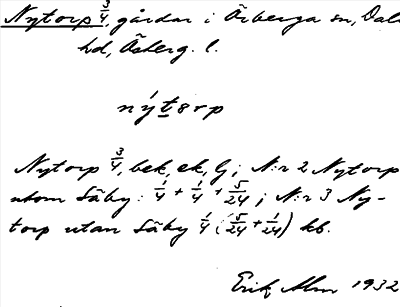 Nytorp 3/4, gårdar i Örberga sn, Dals
hd, Österg. l.
nýtørp
Nytorp 3/4, bek, ek, lj; N:r 2 Nytorp
utom Säby: 1/4 + 1/4 + 5/24; N:r 3 Ny-
torp utan Säby 1/4 (5/24 + 1/24) kb.
Erik Alm 1932